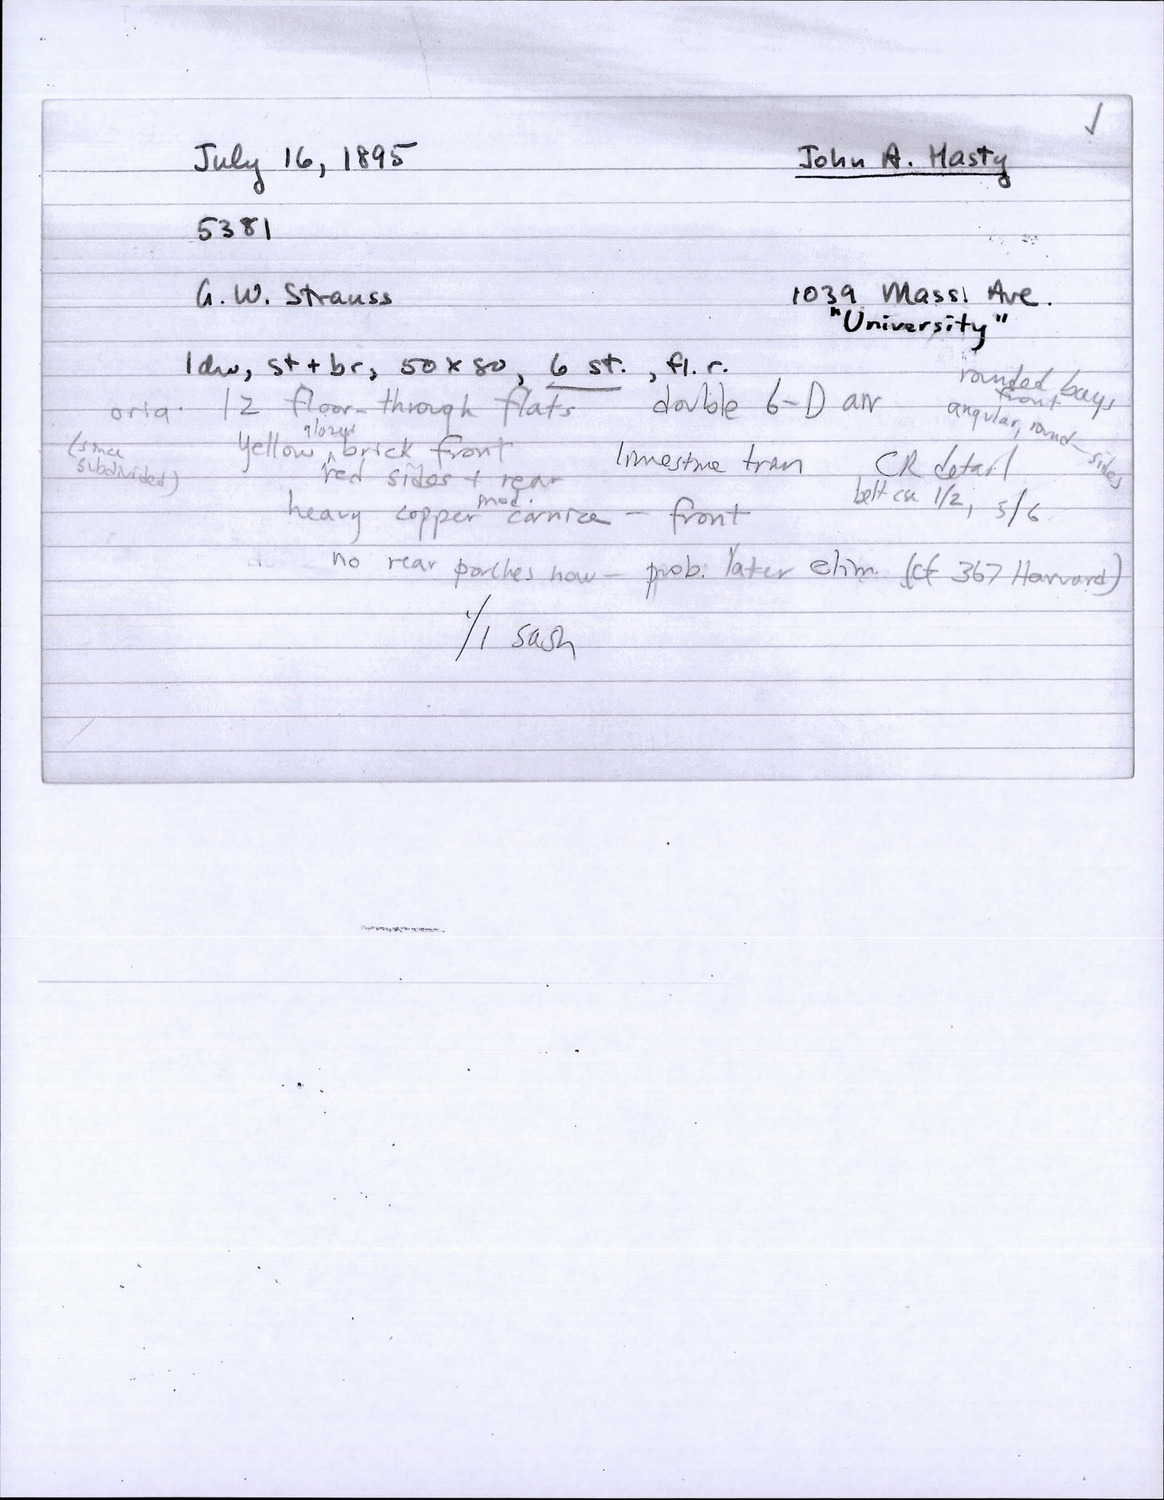 July 16, 1895 John A. Hasty
5381
G. W. Strauss 1039 Mass. Ave.
"University"
1 dw, st + br, 50 x 80, 6 st., fl. r.
rounded bays
front
orig. 12 floor-through flats double 6-D
angular, round - sides
(since subdivided)
glazed
yellow brick front limestone trim CR detail
red sides + rear
belt cse 1/2, 5/6
mod.
heavy copper cornice - front
no rear porches now - prob. later elim. (cf 367 Harvard)
1/1 sash